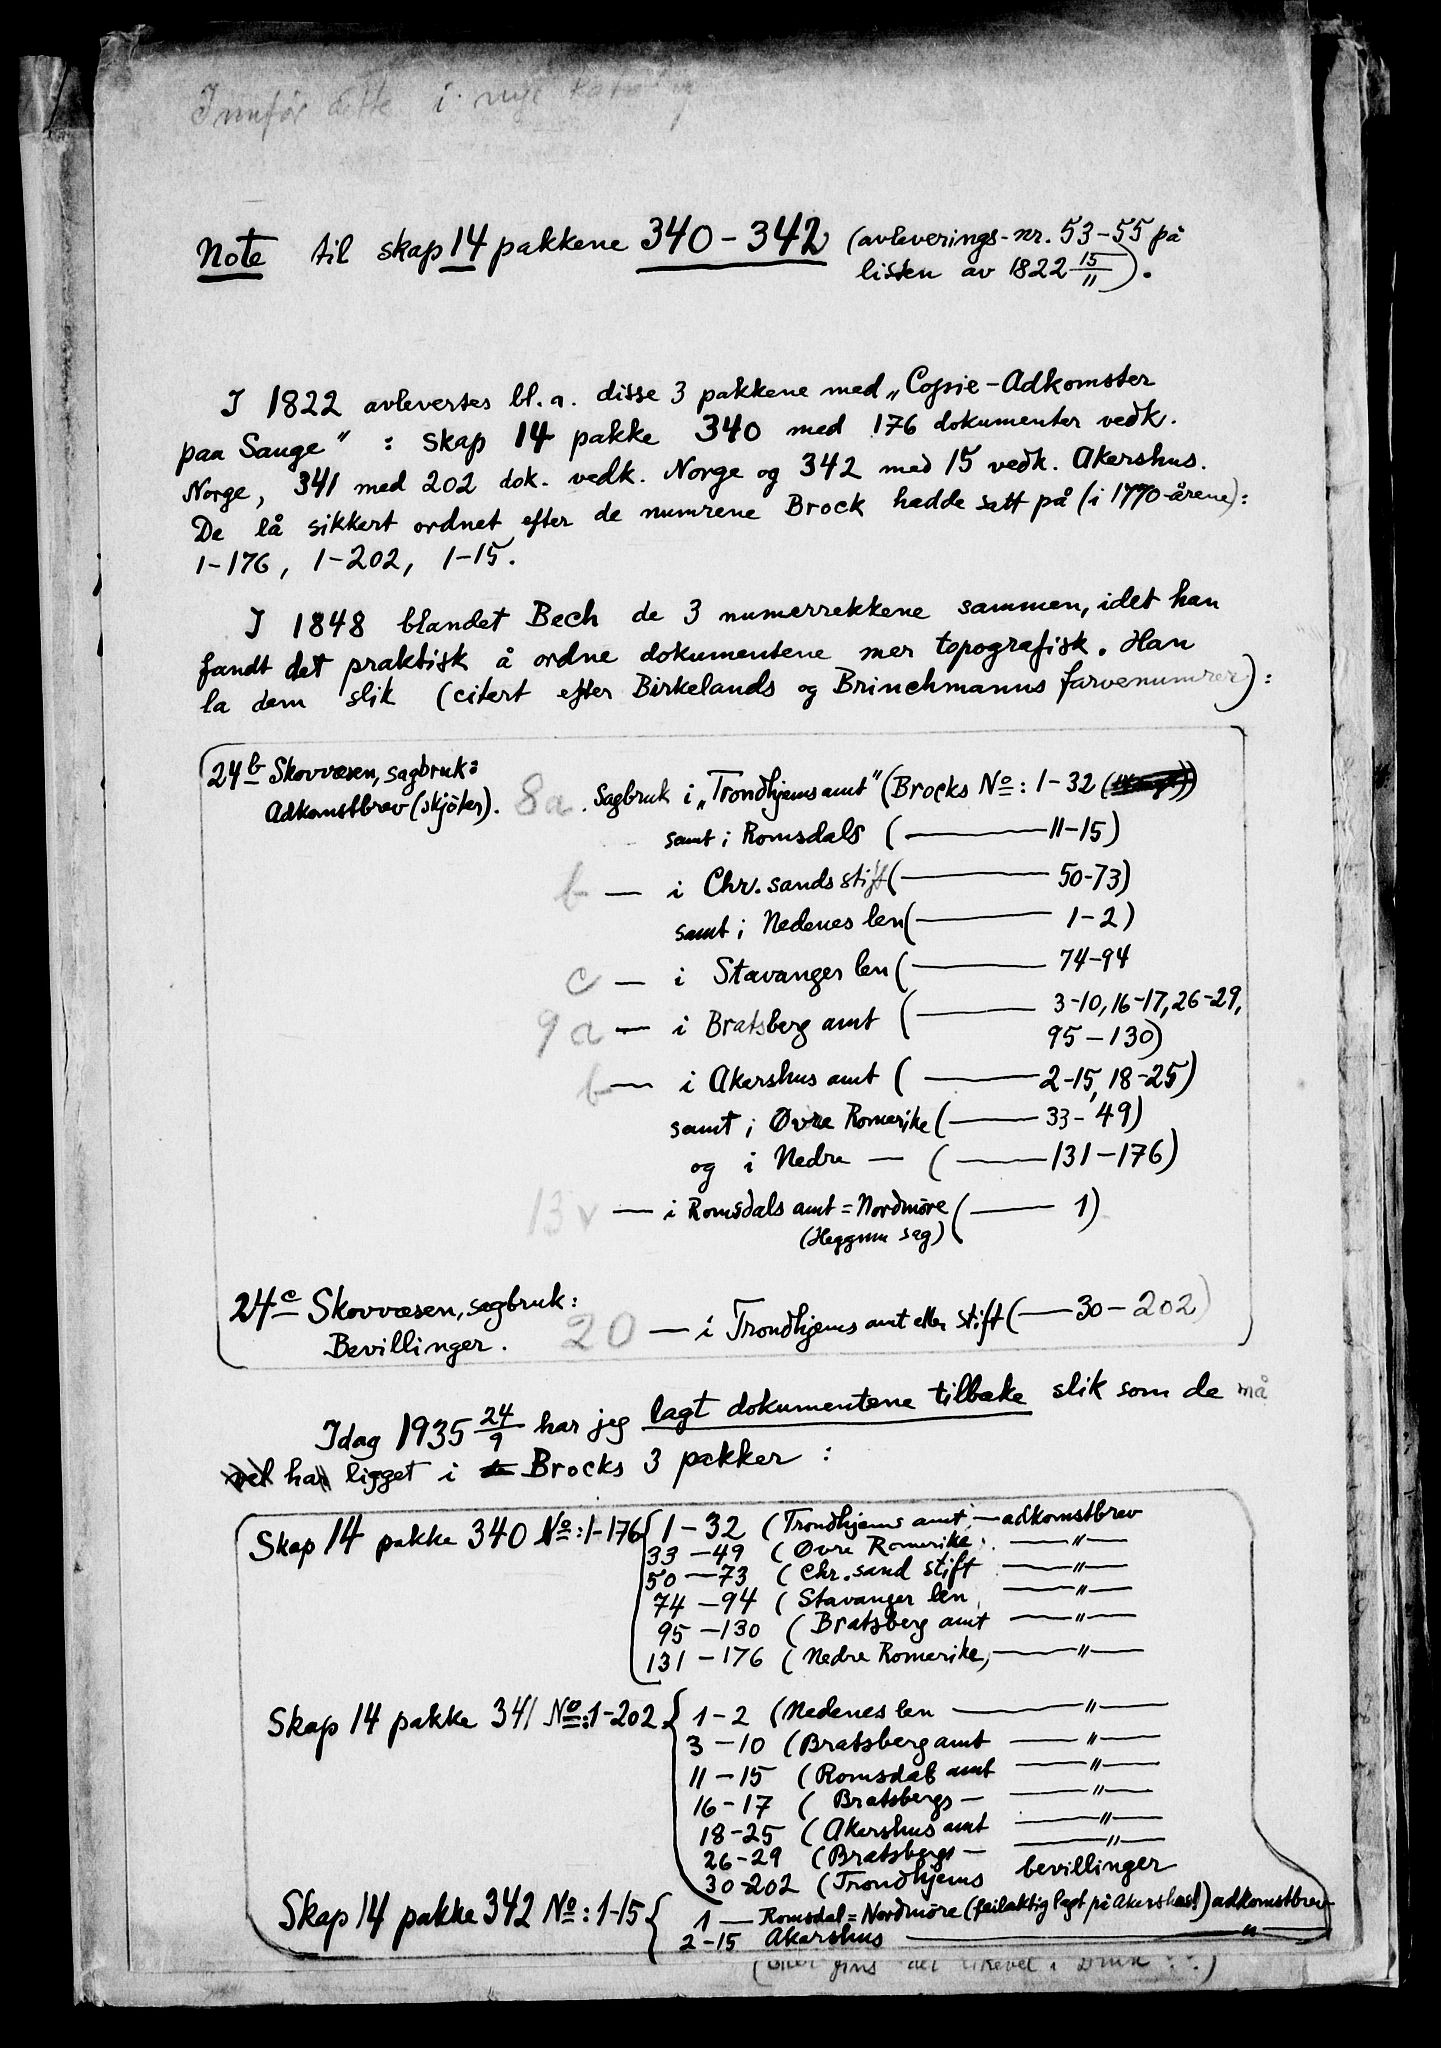 Innfør dette i nye
Note til skap 14 pakkene 340-342 (avleverings-nr. 53-55 på
listen av 1822 15/11).
I 1822 avlevertes bl. a. disse 3 pakkene med „Copie-Adkomster
paa Sauge" : skap 14 pakke 340 med 176 dokumenter vedk.
Norge, 341 med 202 dok. vedk. Norge og 342 med 15 vedk. Akershus.
De lå sikkert ordnet efter de numrene Brock hadde satt på (i 1770-årene):
1-176, 1-202, 1-15.
I 1848 blandet Bech de 3 numerrekkene sammen, idet han
fandt det praktisk å ordne dokumentene mer topografisk. Han
la dem slik (citert efter Birkelands og Brinchmanns farvenumrer):
24b Skovvæsen, sagbruk: 
Adkomstbrev (skjöter). 8a. Sagbruk i „Trondhjems amt" (Brocks No: 1-32
samt i Romsdals ( — 11-15)
b — i Chr.sands stift ( — 50-73)
samt i Nedenes len ( — 1-2)
c — i Stavanger len ( — 74-94
9a — i Bratsberg amt ( — 3-10, 16-17, 26-29,
95-130)
b — i Akershus amt ( — 2-15, 18-25)
samt i Øvre Romerike ( — 33-49)
og i Nedre — ( — 131-176)
13v — i Romsdals amt = Nordmöre ( — 1)
(Heggem sag)
24c Skovvæsen, sagbruk:
Bevillinger. 20 — i Trondhjems amt eller stift ( — 30-202)
Idag 1935 24/9 har jeg lagt dokumentene tilbake slik som de må
vel ha ligget i Brocks 3 pakker :
Skap 14 pakke 340 No: 1-176 { 1-32 (Trondhjems amt, — adkomstbrev
33-49 (Øvre Romerike, — " —
50-73 (Chr.sand stift — " —
74-94 (Stavanger len, — " —
95-130 (Bratsberg amt — " —
131-176 (Nedre Romerike, — " —
Skap 14 pakke 341 No: 1-202 { 1-2 (Nedenes len — " —
3-10 (Bratsberg amt — " —
11-15 (Romsdals amt — " —
16-17 ( Bratsbergs — — " —
18-25 (Akershus amt — " —
26-29 (Bratsbergs — — " —
30-202 (Trondhjems bevillinger
Skap 14 pakke 342 No: 1-15 { 1 — Romsdal = Nordmöre (feilaktig lagt på Akershus!) adkomstbrev
2-15 Akershus — " —